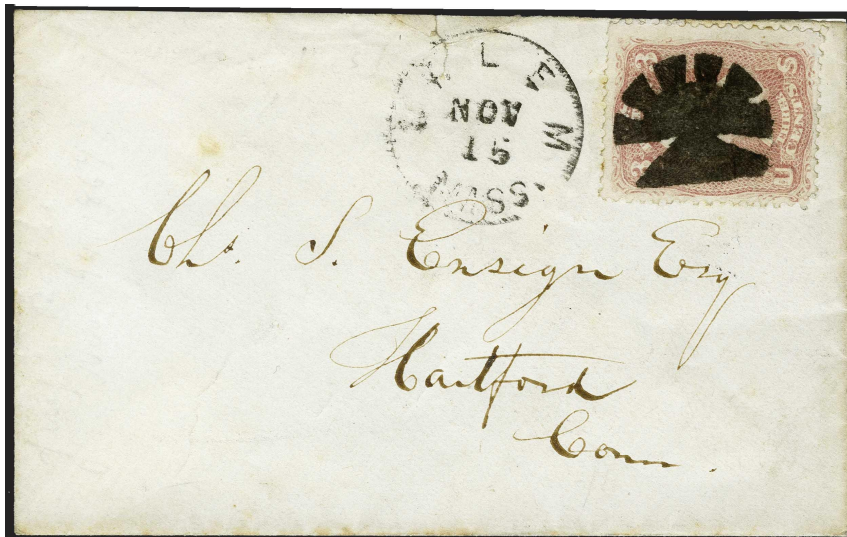 SALEM
NOV
15
MASS.
3 3
U S
Chs. S. Ensign Esq
Hartford
Conn.